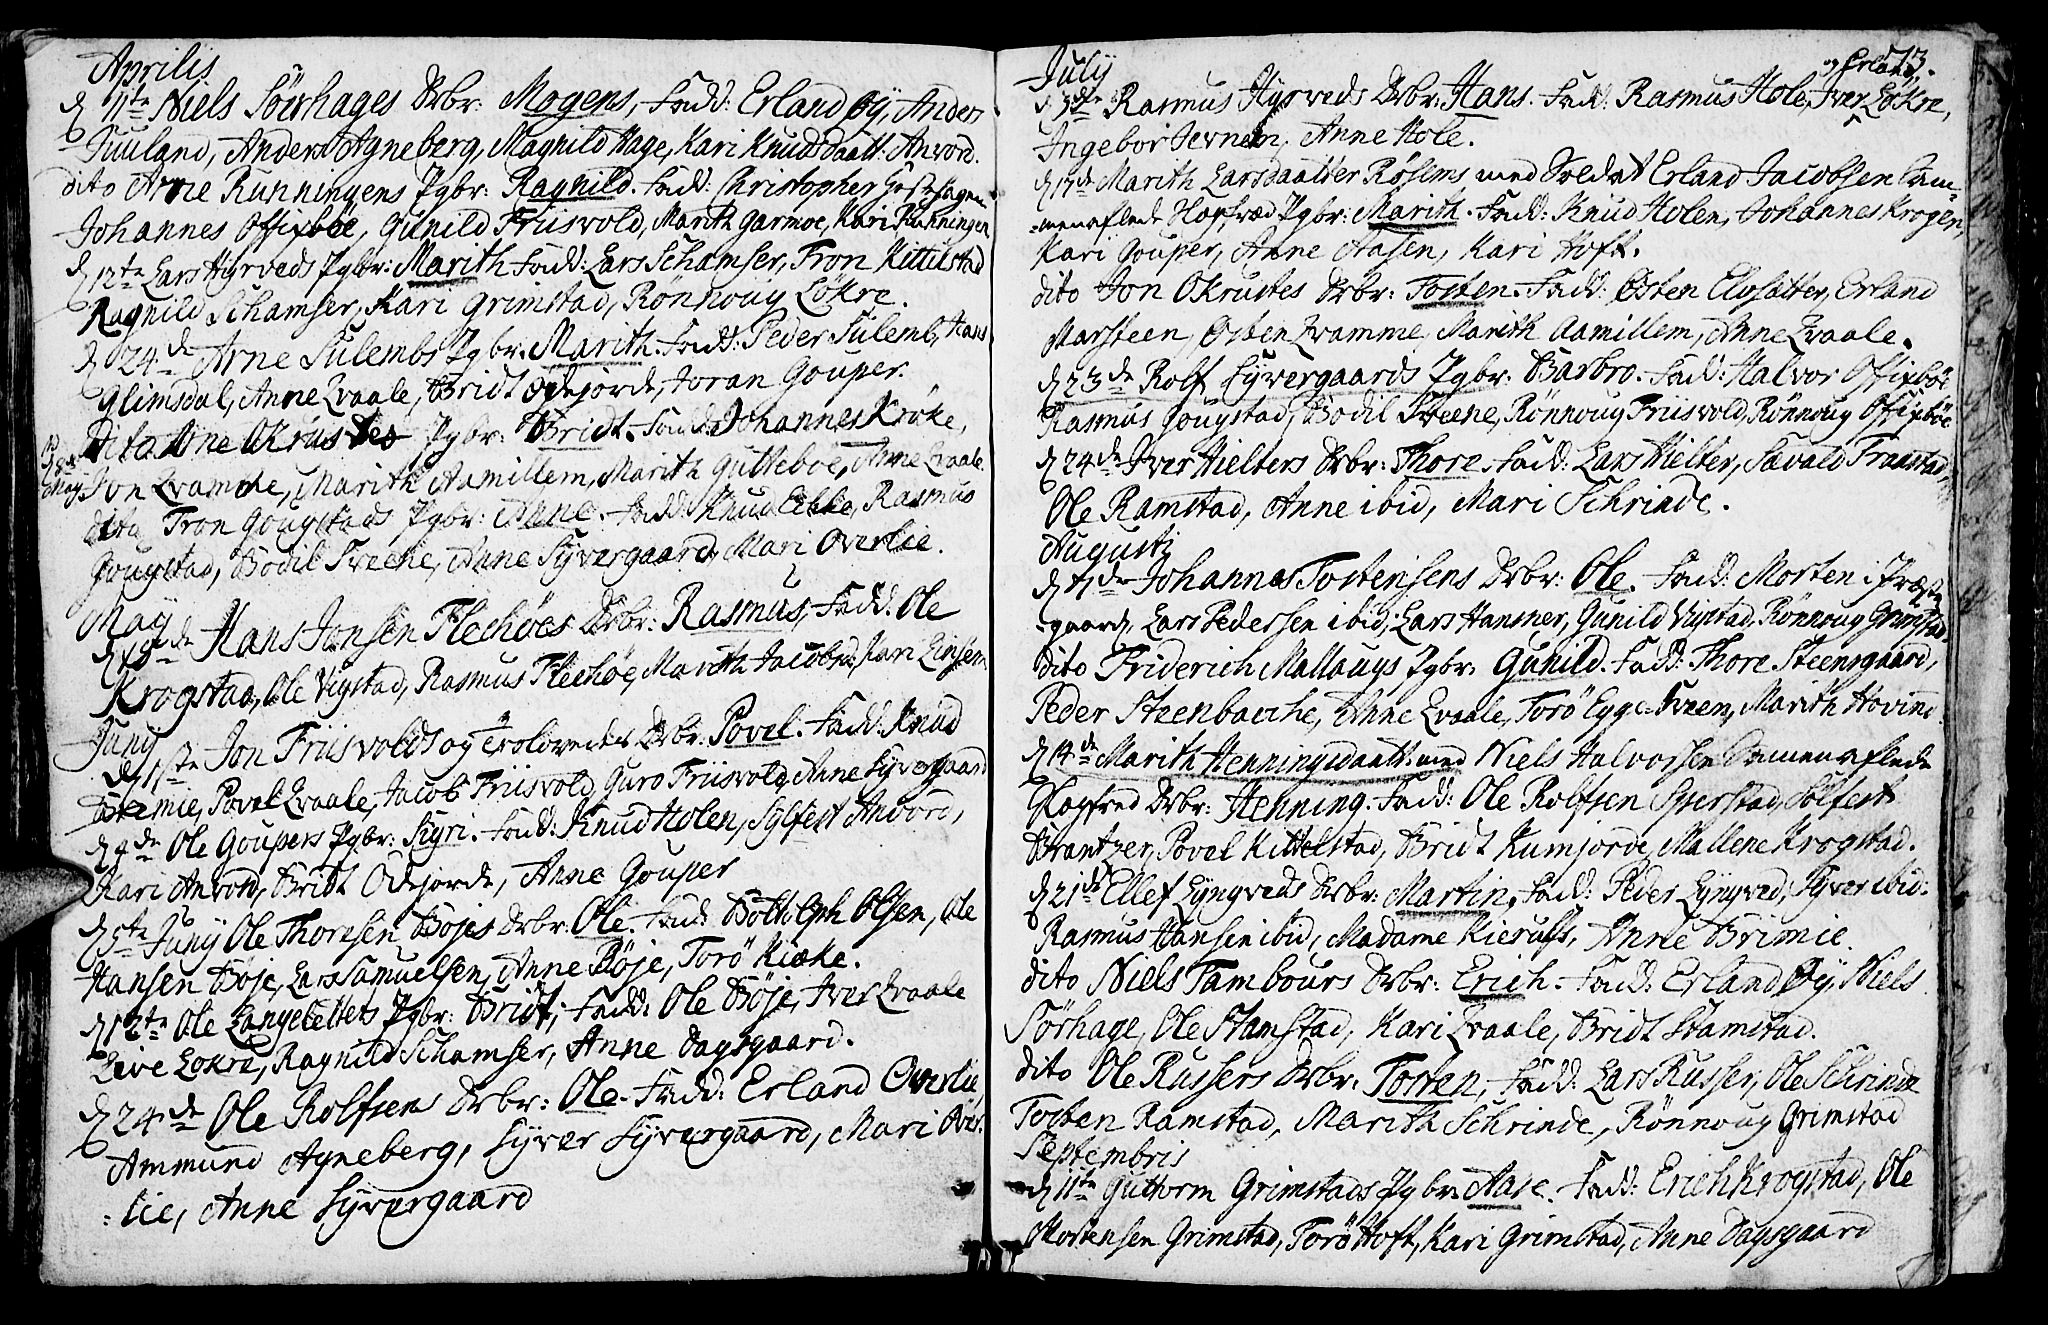 Aprilis
d 11te Niels Sörhages Drbr: Mogens, Fadd: Erland Øÿ, Anders
Juuland, Anders Agneberg, Magnild Hage, Kari Knudsdaatt: Anvord.
dito Arne Runningens Pgbr: Ragnild. Fadd: Christopher
Johannes Offixböe, Gunild Friisvold, Marith Garmoe, Kari Runningen
d 12te Lars Hyrveds Pgbr: Marith Fadd: Lars Schamser, Tron Kittilstad
Ragnild Schamser, Kari Grimstad, Rönnoug Lokre.
d 24de Arne Sulembs Pgbr: Marith. Fadd: Peder Sulemb, Hans
Glimsdal, Anne Qvaale, Bridt Ödejorde, Joran Gouper.
d 8de May
Dito Arne Okrustes Pgbr: Bridt. Fadd: Johannes Kröke,
Jon Qvamme, Marith Aamillem, Marith Gutteboe, Anne Qvaale.
dito Tron Gougstads Pgbr: Anne. Fadd: Knud Ekke, Rasmus
Gougstad, Bodil Sveene, Anne Syvergaard, Mari Overlie.
May
Hans Jonsen Flechöes Drbr: Rasmus, Fadd: Ole
Krogstad, Ole Vigstad, Rasmus Flechöe, Marith Jacobsd, Kari
Juny
d 1ste Jon Friisvolds og Drbr: Povel. Fadd: Knud
Brimie, Povel Qvaale, Jacob Friisvold, Guro Friisvold, Anne Syvergaard
d 4de Ole Goupers Pgbr: Sigri. Fadd: Knud Holen, Sylfest Anvord,
Kari Anvord, Bridt Ödejorde, Anne Gouper
d 5te Juny Ole Thoresen Böjes Drbr: Ole. Fadd: Bottolph Olsen, Ole
Hansen Böje, Lars Samuelsen, Anne Böje, Torö Kiæke.
d 12te Ole Langelettets Pgbr: Bridt, Fadd: Ole Böje, Iver Qvaale
Live Lokre, Ragnild Schamser, Anne Dagsgaard.
d 24de Ole Rolfsens Drbr: Ole. Fadd: Erland Overlie,
Ammund Agneberg, Syver Syvergaard, Mari Över:
:lie, Anne Syvergaard
July
73.
og Erland
d 3de Rasmus Hyrveds Drbr: Hans. Fadd: Rasmus Hole, Iver Lokre,
Ingebor Anne Hole.
d 17de Marith Larsdaatter Röseims med Soldat Erland Jacobsen Sam-
-menaflede Pgbr: Marith. Fadd: Knud Holen, Johannes Krogen,
Kari Gouper, Anne Aasen, Kari Hoft.
dito Jon Okrustes Drbr: Tosten. Fadd: Østen Elvsætter, Erland
Marsteen, Østen Qvamme, Marith Aamillem, Anne Qvaale.
d 23de Rolf Syvergaards Pgbr: Barbro. Fadd: Halvor Offixböe
Rasmus Gougstad, Bodil Steene, Rönnoug Friisvold, Rönnoug Offixböe
d 24de Iver Hielters Drbr: Thore. Fadd: Lars Hielter, Savald Fraastad
Ole Ramstad, Anne ibid, Mari Schrinde.
Augusti
d 7de Johannes Tostensens Drbr: Ole. Fadd: Morten i Præste
-gaard, Lars Pedersen ibid, Lars Hammer, Gunild Vigstad, Rönnoug Grimstad
dito Friderich Mallaugs Pgbr: Gunild. Fadd: Thore Steensgaard,
Peder Steenbacche, Anne Qvaale, Torö Eggesveen, Marith Hovind
d 14de Marith Henningsdaatt: med Niels Halvorsen Samenaflede
Drbr: Henning. Fadd: Ole Rolfsen Sperstad, Solfest
Brantzer, Povel Kittelstad, Bridt Kumjorde, Mallene Krogstad.
d 21de Ellef Lyngveds Drbr: Martin, Fadd: Peder Lyngved, Syver ibid:
Rasmus Hansen ibid, Madame Kierulfs, Anne Brimie.
dito Niels Tambours Drbr: Erich. Fadd: Erland Øy, Niels
Sörhage, Ole Stamstad, Kari Qvaale, Bridt Stamstad.
dito Ole Russers Drbr: Tosten, Fadd: Lars Russer, Ole Schrinde
Tosten Ramstad, Marith Schrinde, Rönnoug Grimstad
Septembris
d 11te Guttorm Grimstads Pgbr: Aase. Fadd: Erich Krogstad, Ole
Mortensen Grimstad, Torö Hoft, Kari Grimstad, Anne Dagsgaard